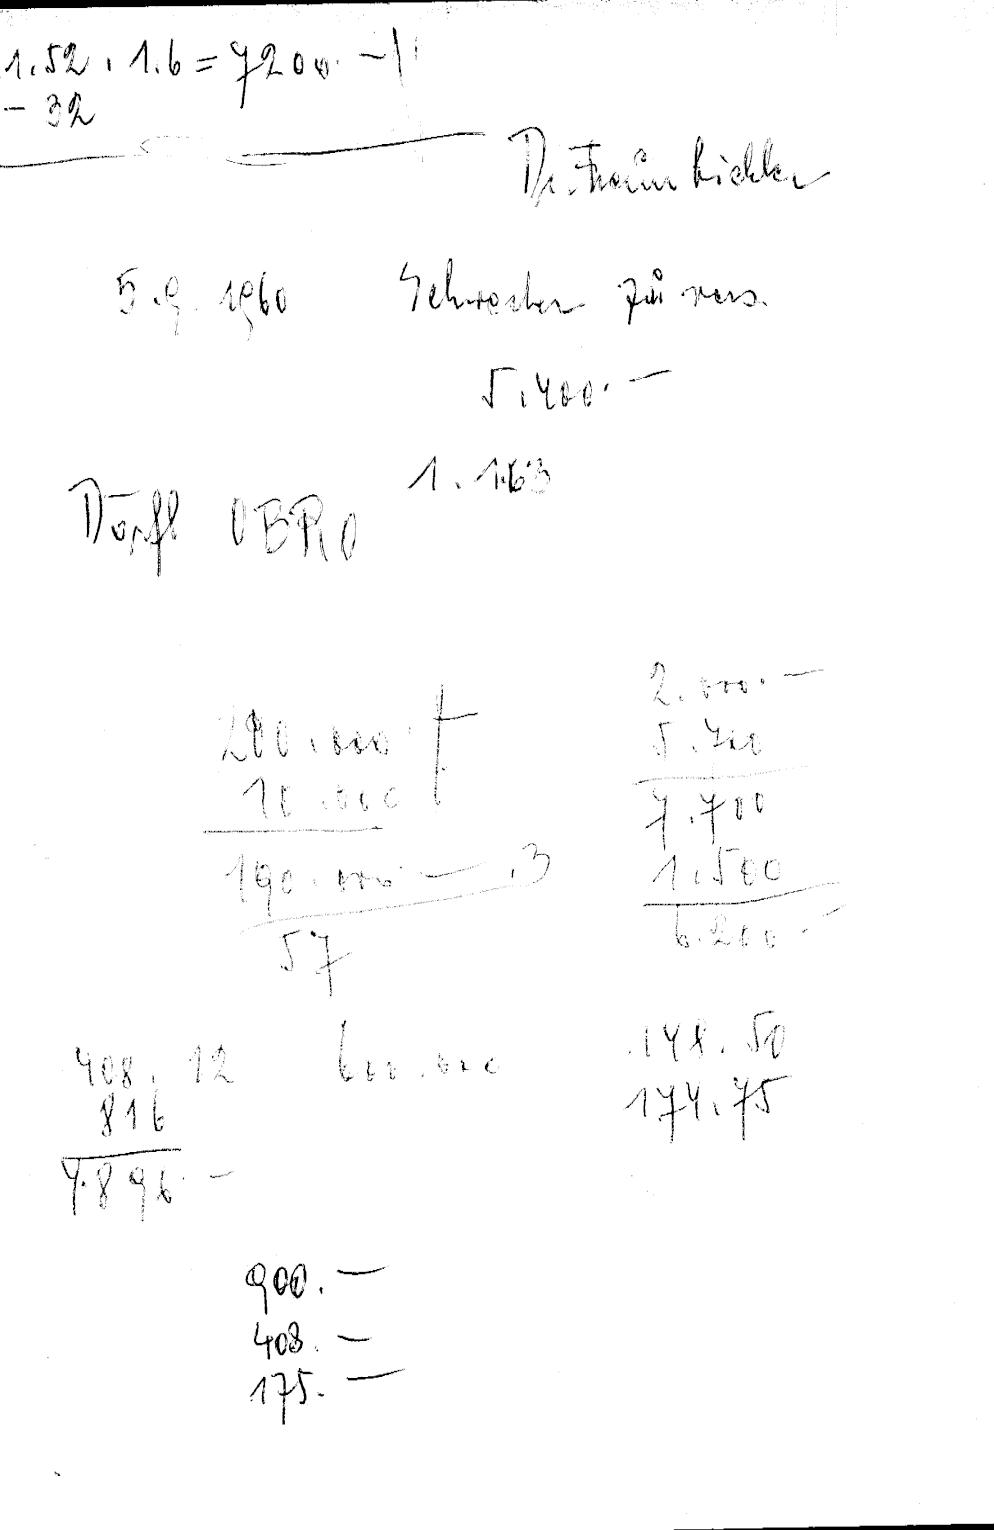 1.52 . 1.6 = 7200.-
- 32
Dr.
5.9.1960 zu vers.
5.400.-
1.163
Dörfl OBRO
200.000.
10.000
190.000.- .3
57
2.000.-
5.700
7.700
1.500
6.200.-
408. 12
816
4.896.-
600.000
148.50
174.75
900.-
408.-
175.-